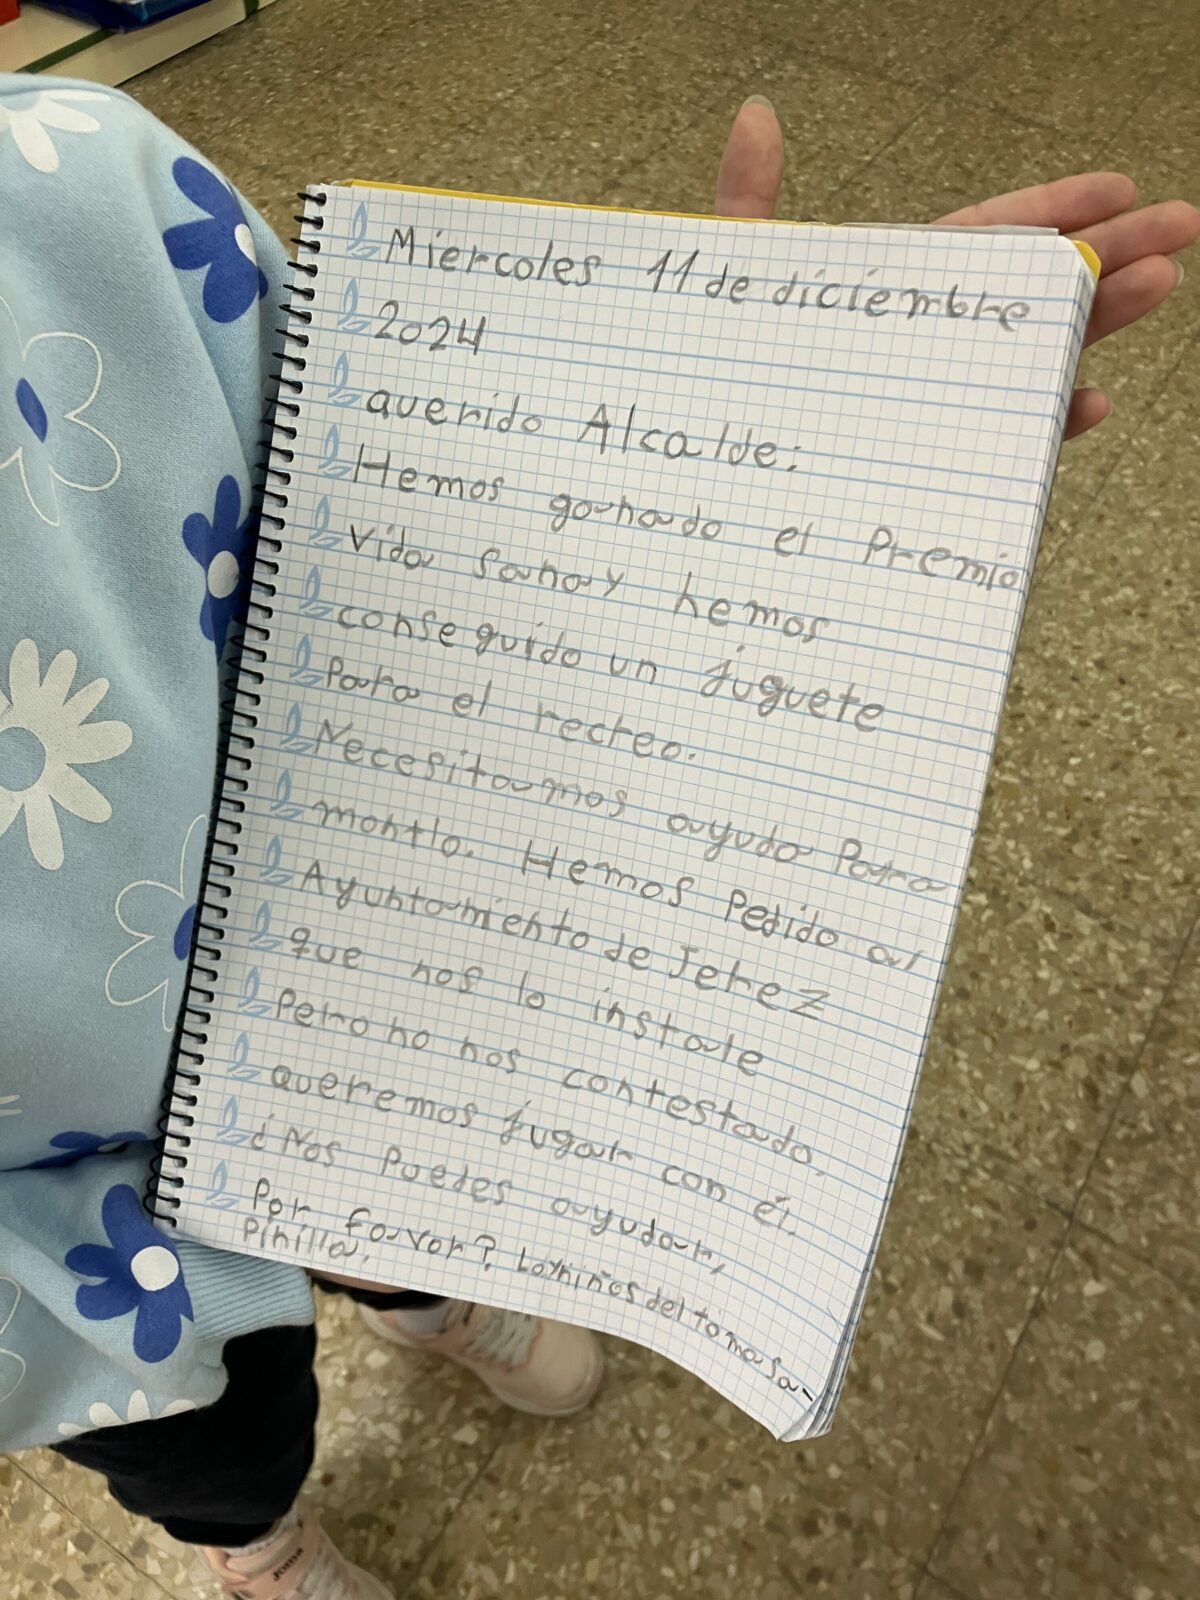 Miercoles 11 de diciembre
2024
querido Alcalde:
Hemos ganado el Premio
Vida Sana y hemos
conseguido un juguete
Para el recreo.
Necesitamos ayuda Para
montlo. Hemos Pedido al
Ayuntamiento de Jerez
que nos lo instale
Pero no nos contestado.
queremos jugar con él.
¿Nos Puedes ayudar,
Por favor? Loʏniños del tomasa
Pinilla.
Joma